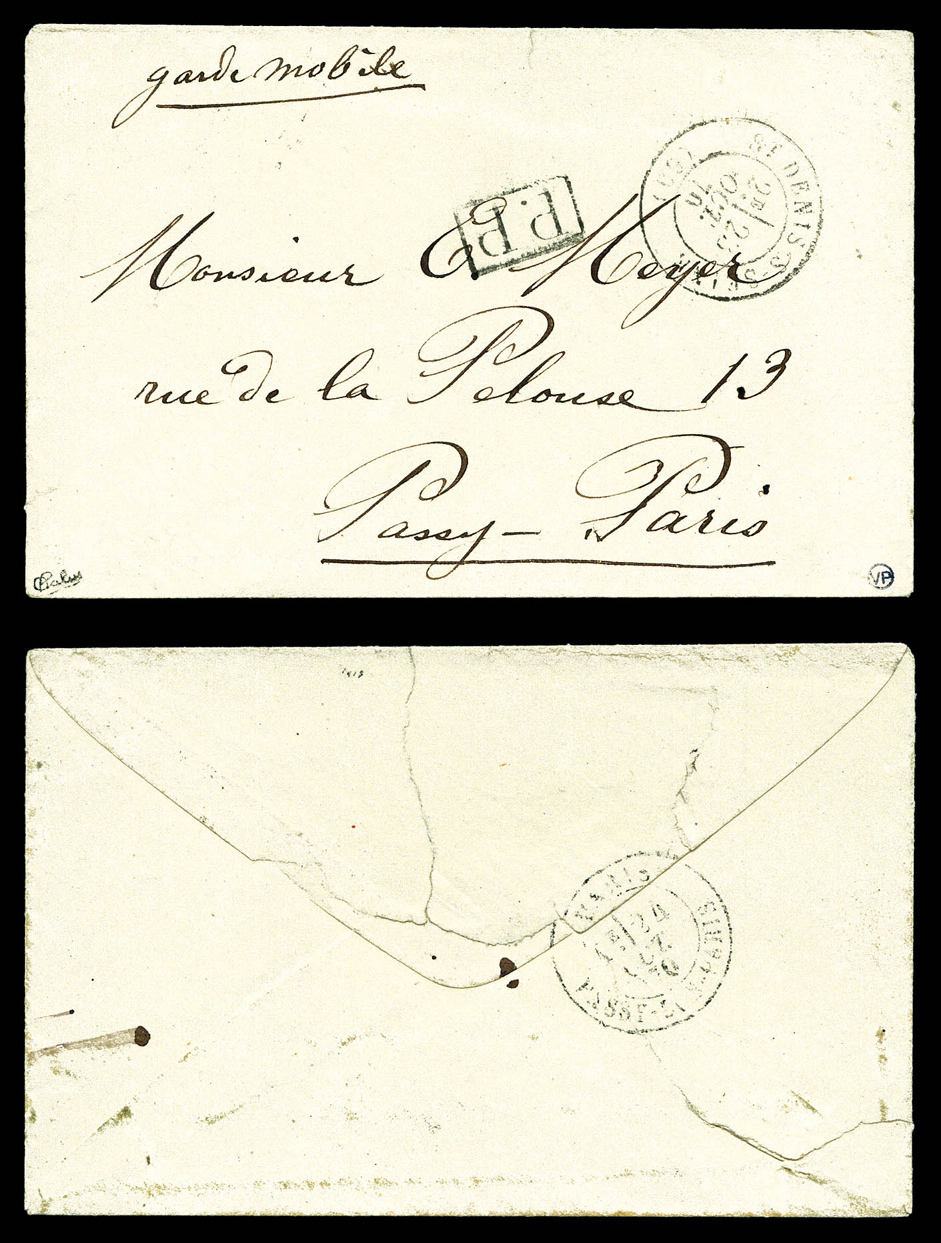 garde mobile
P.P.
ST DENIS-S-SEINE (60)
2E / 23
OCT.
70
Monsieur E. Meyer
rue de la Pelouse 13
Passy - Paris
Calves
VP
PARIS
24
70
PASSY-LES-PARIS